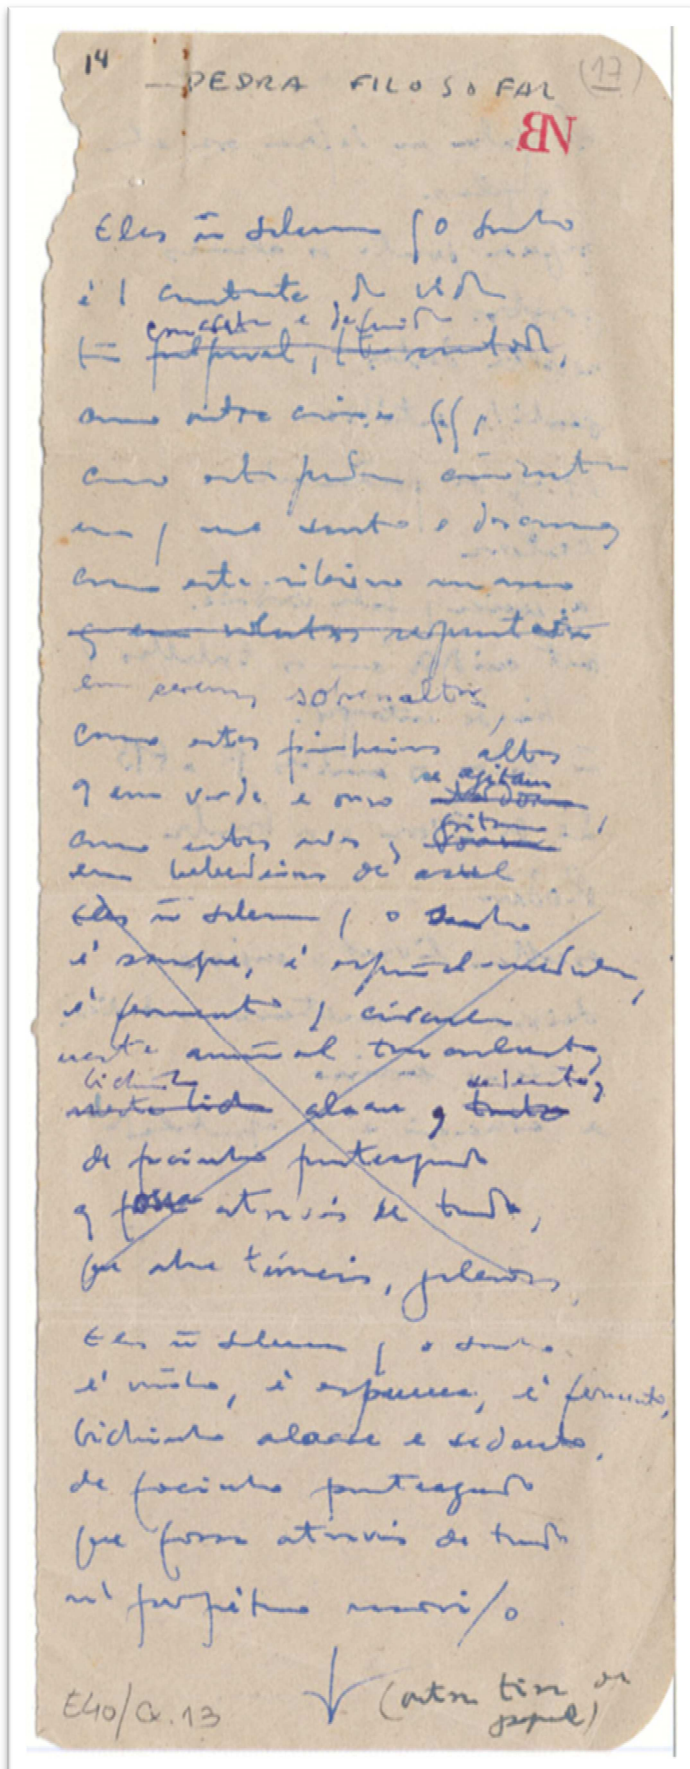 14
PEDRA FILOSOFAL
(17)
BN
Eles ñ sabem q o sonho
é 1 constante da vida
concreta e definida
tão
como outra coisa qq,
como esta pedra cinzenta
em q me sento e descanso,
como este ribeiro manso
q em
em serenos sobressaltos,
como estes pinheiros altos
se agitam
q em verde e ouro
gritam
como estas aves q
em bebedeiras de azul
Eles ñ sabem q o sonho
é sangue, é espinal-medula,
é fermento q circula
neste animal
bichinho sedento,
alacre q
de focinho pontiagudo
q fossa através de tudo,
que abre túneis, galerias,
Eles ñ sabem q o sonho
é vinho, é espuma, é fermento,
bichinho alacre e sedento,
de focinho pontiagudo
que fossa através de tudo
n' perpétuo movi/o
(outra tira de
papel)
E40/Cx.13